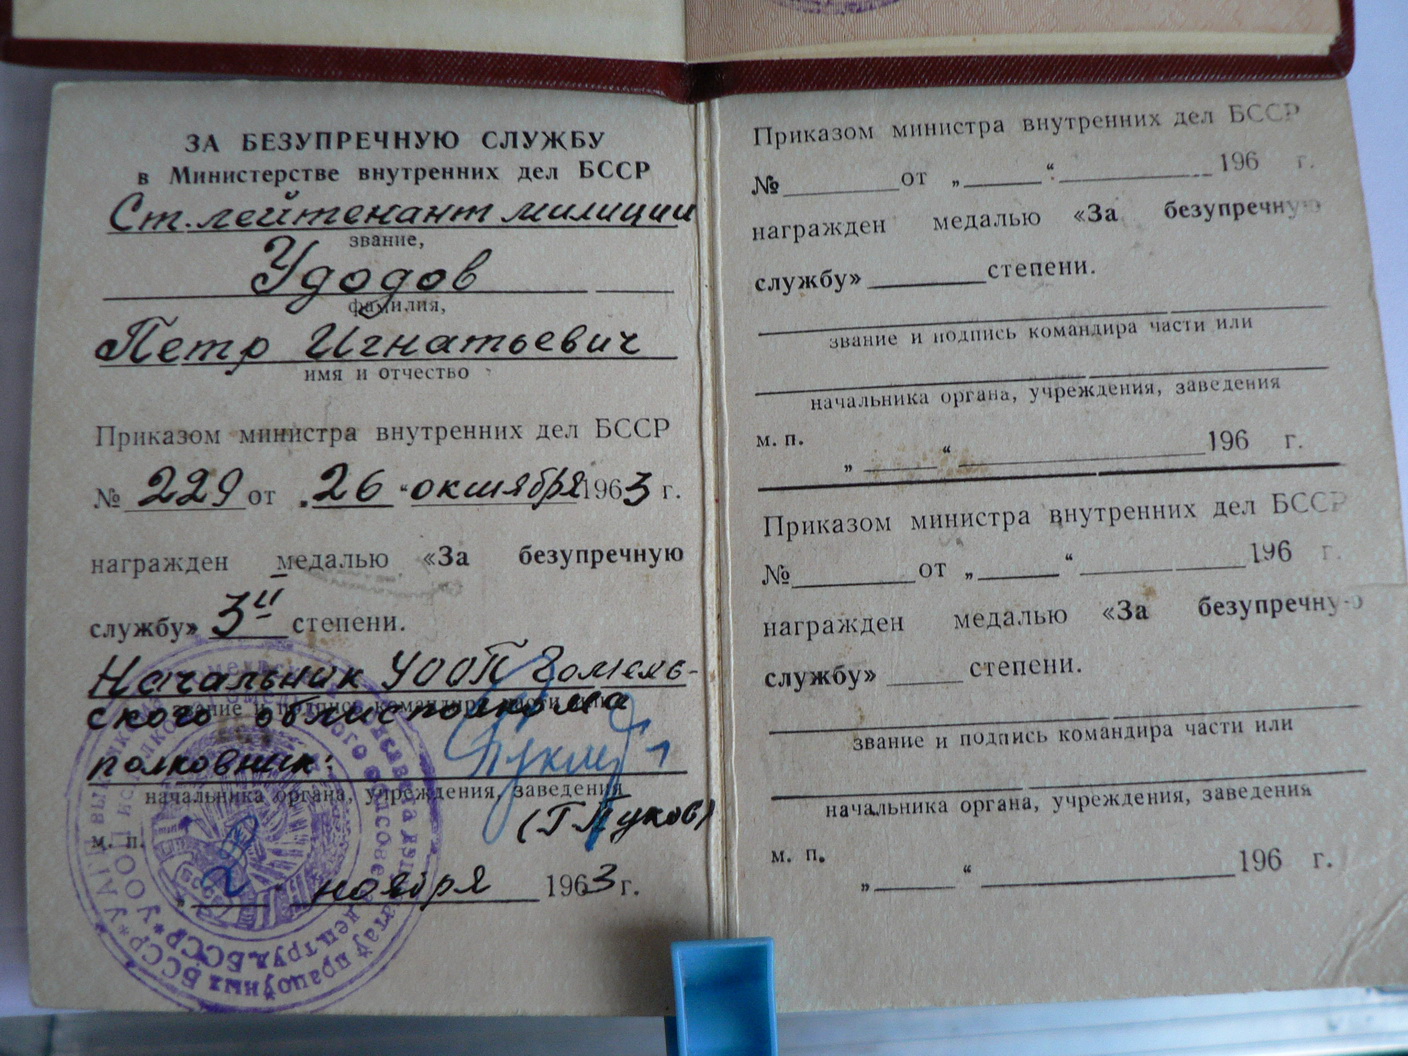 ЗА БЕЗУПРЕЧНУЮ СЛУЖБУ
в Министерстве внутренних дел БССР
Ст. лейтенант милиции
звание,
Удодов
фамилия,
Петр Игнатьевич
имя и отчество
Приказом министра внутренних дел БССР
№ 229 от „26“ октября 1963 г.
награжден медалью «За безупречную
службу» 3й степени.
Начальник УООП Гомель-
звание и подпись командира части или
ского облисполкома
полковник:
начальника органа, учреждения, заведения
(Г Пуков)
м. п.
„2“ ноября 1963 г.
Приказом министра внутренних дел БССР
№ от „ “ 196 г.
награжден медалью «За безупречную
службу» степени.
звание и подпись командира части или
начальника органа, учреждения, заведения
м. п.
„ “ 196 г.
Приказом министра внутренних дел БССР
№ от „ “ 196 г.
награжден медалью «За безупречную
службу» степени.
звание и подпись командира части или
начальника органа, учреждения, заведения
м. п.
„ “ 196 г.